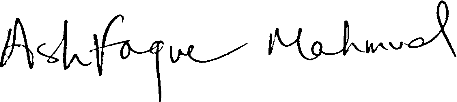 Ashfaque Mahmud